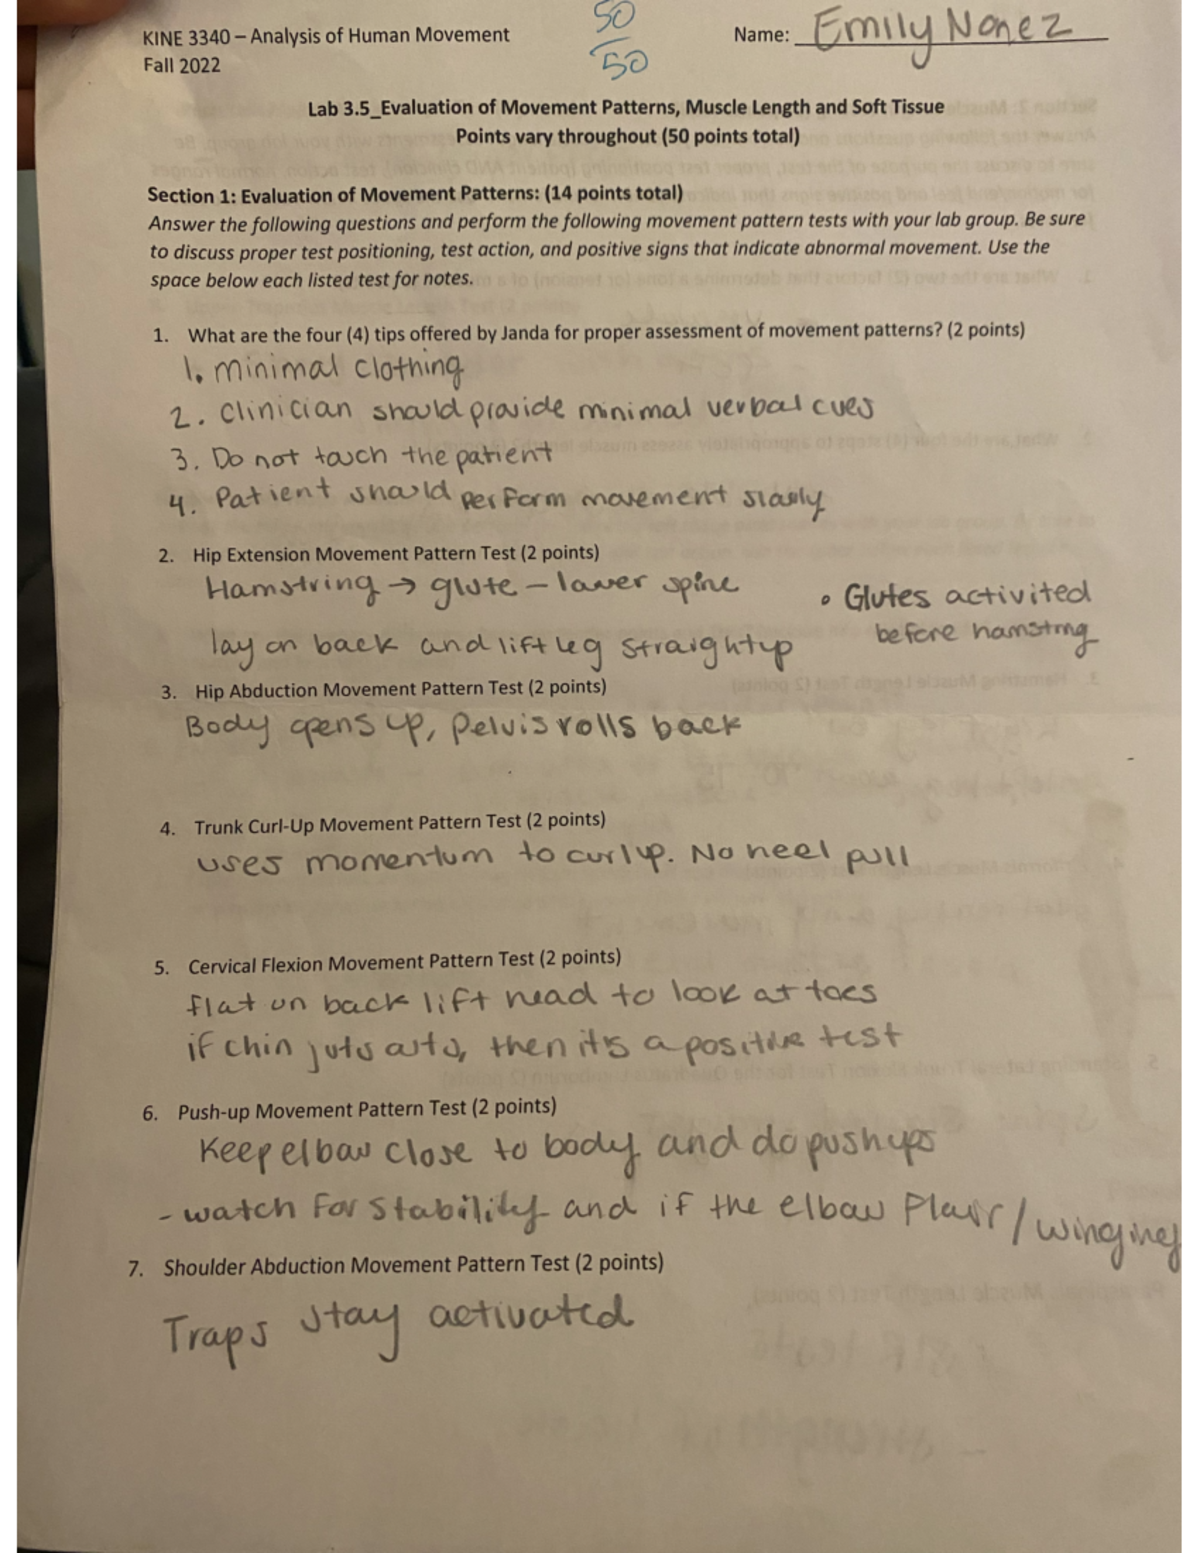 KINE 3340 – Analysis of Human Movement
Fall 2022
50
50
Name: Emily Nonez
Lab 3.5_Evaluation of Movement Patterns, Muscle Length and Soft Tissue
Points vary throughout (50 points total)
Section 1: Evaluation of Movement Patterns: (14 points total)
Answer the following questions and perform the following movement pattern tests with your lab group. Be sure
to discuss proper test positioning, test action, and positive signs that indicate abnormal movement. Use the
space below each listed test for notes.
1. What are the four (4) tips offered by Janda for proper assessment of movement patterns? (2 points)
1. minimal clothing
2. clinician should provide minimal verbal cues
3. Do not touch the patient
4. Patient should perform movement slowly
2. Hip Extension Movement Pattern Test (2 points)
Hamstring → glute – lower spine
• Glutes activited
before hamstrng
lay on back and lift leg straight up
3. Hip Abduction Movement Pattern Test (2 points)
Body opens up, pelvis rolls back
4. Trunk Curl-Up Movement Pattern Test (2 points)
uses momentum to curl up. No heel pull
5. Cervical Flexion Movement Pattern Test (2 points)
flat on back lift head to look at toes
if chin juts out, then it's a positive test
6. Push-up Movement Pattern Test (2 points)
Keep elbow close to body and do pushups
- watch for stability and if the elbow flair / winging
7. Shoulder Abduction Movement Pattern Test (2 points)
Traps stay activated